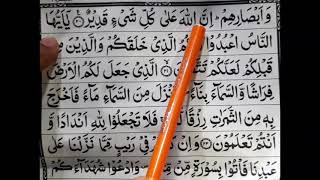 وَاَبْصَارِهِمْ ؕ اِنَّ اللّٰهَ عَلٰى كُلِّ شَىْءٍ قَدِيْرٌ ۝ يٰٓاَيُّهَا
النَّاسُ اعْبُدُوْا كُمُ الَّذِىْ خَلَقَكُمْ وَالَّذِيْنَ مِنْ
قَبْلِكُمْ لَعَلَّكُمْ تَتَّقُوْنَ الَّذِىْ جَعَلَ لَكُمُ الْاَرْضَ
فِرَاشًا وَّالسَّمَآءَ بِنَآءً مِنَ السَّمَآءِ مَآءً فَاَخْرَجَ
بِهٖ مِنَ الثَّمَرٰتِ رِزْقًا فَلَا تَجْعَلُوْا لِلّٰهِ اَنْدَادًا وَّ
اَنْتُمْ تَعْلَمُوْنَ ۝ وَاِنْ كُنْتُمْ فِىْ رَيْبٍ مِّمَّا نَزَّلْنَا عَلٰى
عَبْدِنَا فَاْتُوْا بِسُوْرَةٍ مِّنْ وَادْعُوْا شُهَدَآءَكُمْ